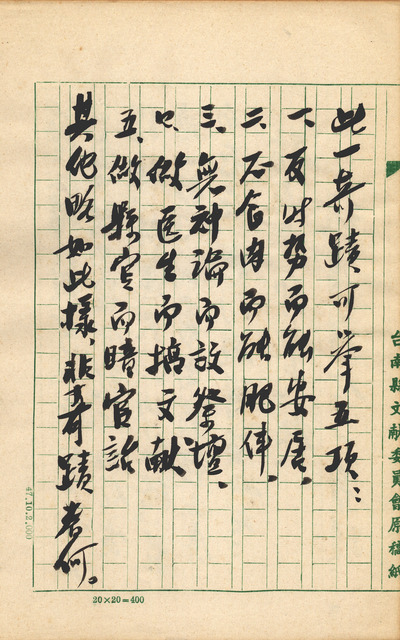 此一奇蹟可举五項：
一、反時勢而能安居。
二、不食肉而能肥体。
三、無神論而設祭壇。
四、做医生而搞文献
五、做縣官而晴官話
其他略如此樣，非奇蹟者何。
台南縣文献委員會原稿紙
47.10.2,000
20×20=400